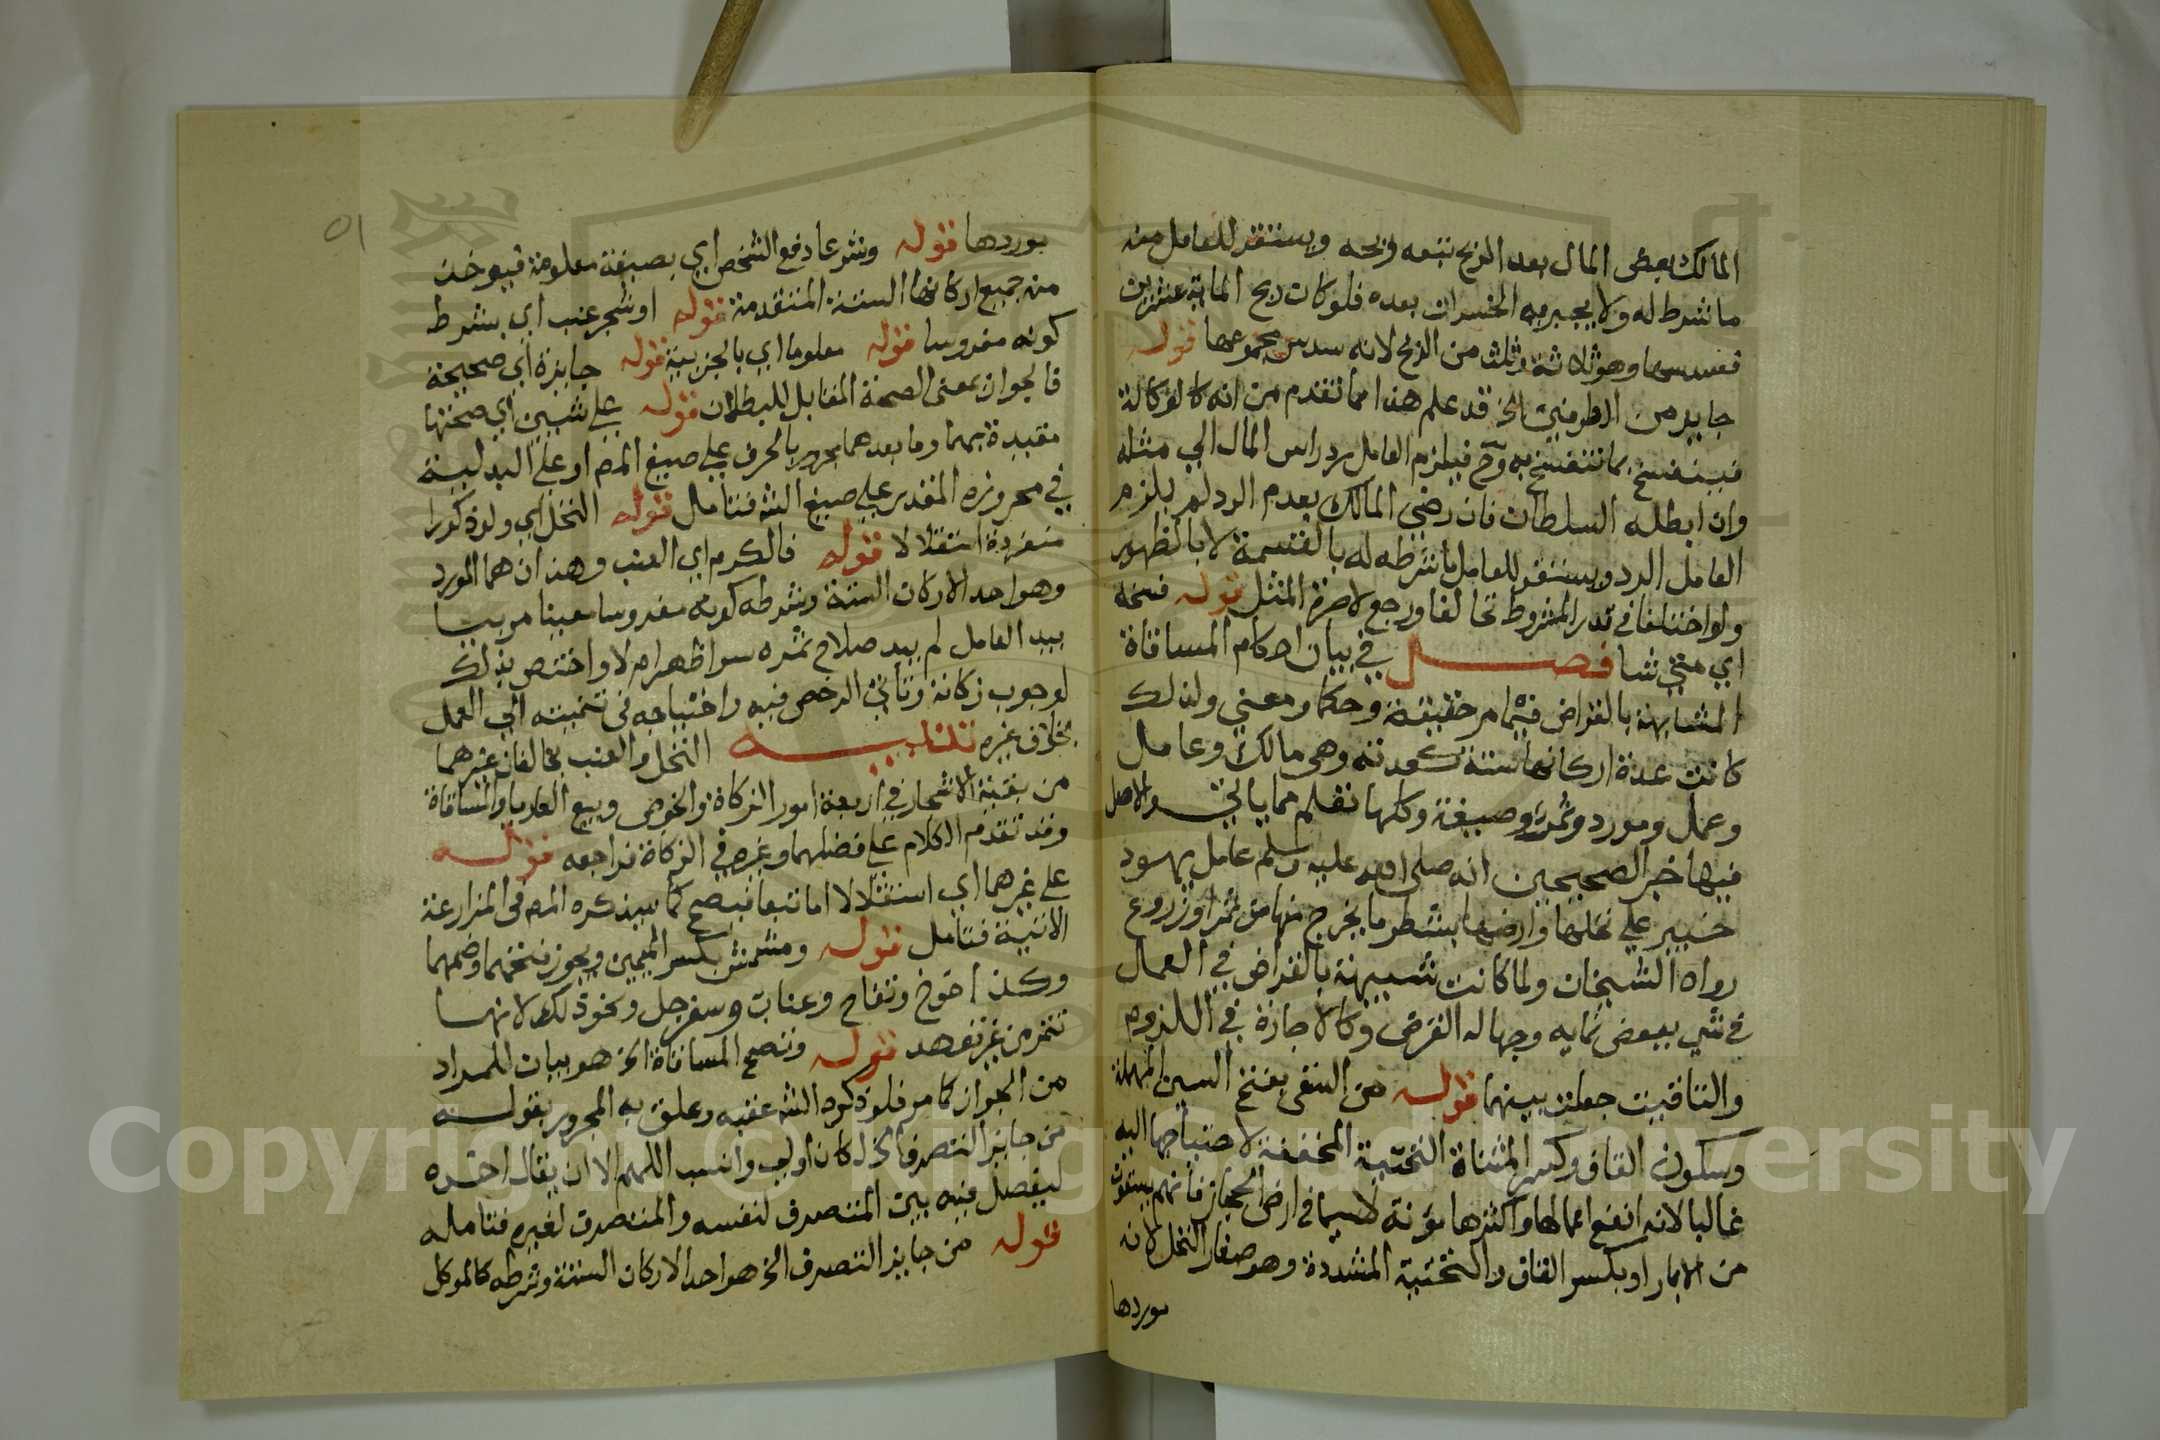 المالك بعض المال بعد الربح تبعه ربحه ويستقر للعامل منه
ما شرط له ولا يجبر به الخسران بعده فلو كان ربح الماية عشرين
فسدسها وهو ثلاثة وثلث من الربح لانه سدس مجموعها قوله
جايز من الطرفين الخ قد علم هذا مما تقدم من انه كالوكالة
فينفسخ بما تنفسخ به وح فيلزم العامل رد راس المال الي مثله
وان ابطله السلطان فان رضي المالك بعدم الرد لم يلزم
العامل الرد ويستقر للعامل ما شرطه له بالقسمة لا بالظهور
ولو اختلفا في قدر المشروط تحالفا ورجع لاجرة المثل قوله فسخه
اي متي شا فصل في بيان احكام المساقاة
المشابهة بالقراض فيما مر حقيقة وحكما ومعني ولذلك
كانت عدة اركانها ستة كعدته وهي مالك وعامل
وعمل ومورد وثمرة وصيغة وكلها تعلم مما ياتي والاصل
فيها خبر الصحيحين انه صلي الله عليه وسلم عامل يهود
خيبر علي نخلها وارضها بشطر ما يخرج منها من ثمر او زروع
رواه الشيخان ولما كانت شبيهة بالقراض في العمل
في شي ببعض نمايه وجهالة العوض وكالاجارة في اللزوم
والتاقيت جعلت بينهما قوله من السقي بفتح السين المهملة
وسكون القاف وكسر المثناة التحتية المخففة لاحتياجها اليه
غالبا لانه انفع اعمالها واكثرها مؤنة لاسيما في ارض الحجاز فانهم يسقون
من الابار او بكسر القاف والتحتية المشددة وهو صغار النخل لانه
موردها
٥١
موردها قوله وشرعا دفع الشخص اي بصيغة معلومة فيوخذ
منه جميع اركانها الستة المتقدمة قوله او شجر عنب اي بشرط
كونه مغروسا قوله معلوما اي بالجزيية قوله جايزة اي صحيحة
فالجواز بمعني الصحة المقابل للبطلان قوله علي شيين اي صحتها
مقيدة بهما وما بعدهما مجرور بالحرف علي صيغ المص او علي البدلية
في مجروره المقدر علي صيغ الش فتامل قوله النخل اي ولو ذكورا
منفردة استقلالا قوله فالكرم اي العنب وهذان هما المورد
وهو احد الاركان الستة وشرطه كونه مغروسا معينا مرييا
بيد العامل لم يبد صلاح ثمره سوا ظهر ام لا واختص بذلك
لوجوب زكاته وتاتي الخرص فيه واحتياجه في تنميته الي العمل
بخلاف غيره تنبيه النخل والعنب يخالفان غيرهما
من بقية الاشجار في اربعة امور الزكاة والخرص وبيع العرايا والمساقاة
وقد تقدم الكلام علي فضلهما وغيره في الزكاة فراجعه قوله
علي غيرهما اي استقلالا اما تبعا فيصح كما سيذكره المص في المزارعة
الاتية فتامل قوله ومشمش بكسر الميمين ويجوز فتحهما وضمهما
وكذا خوخ وتفاح وعناب وسفرجل ونحو ذلك لانها
تثمر من غير تعهد قوله وتصح المساقاة الخ هو بيان للمراد
من الجواز كما مر فلو ذكره الش عقبه وعلق به المجرور بقوله
من جايز التصرف الخ لكان اولي وانسب اللهم الا ان يقال اخره
ليفصل فيه بين المتصرف لنفسه والمتصرف لغيره فتامله
قوله من جايز التصرف الخ هو احد الاركان الستة وشرطه كالموكل
Copyright © King Saud University